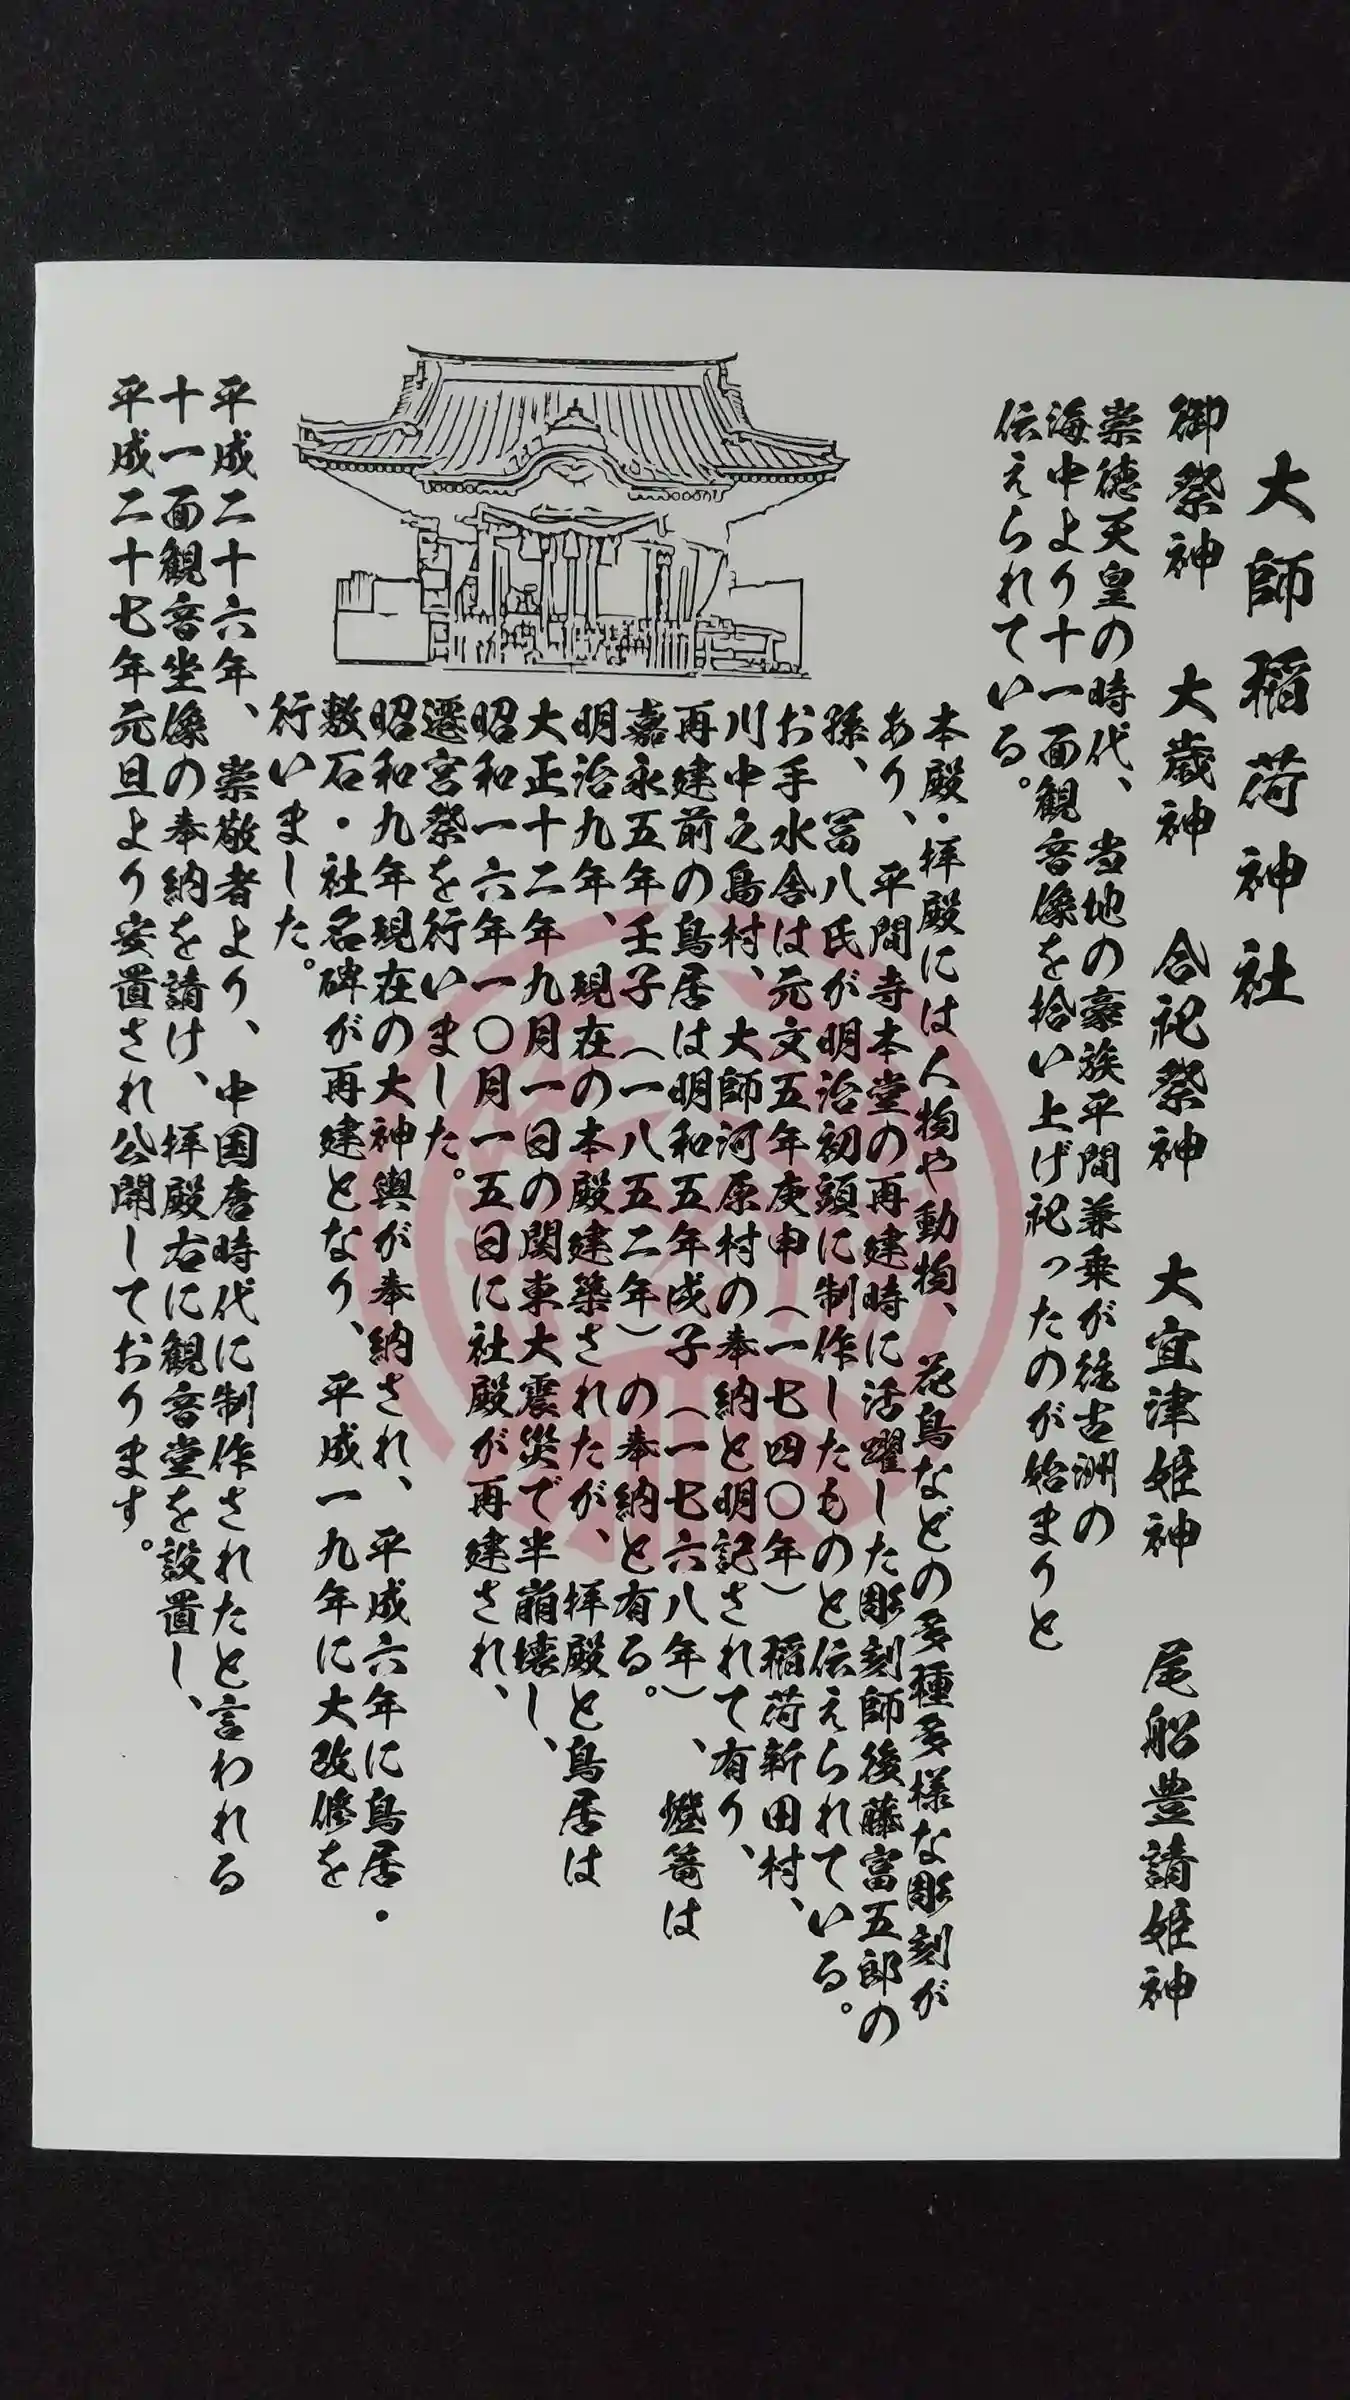 大師稲荷神社
御祭神　大歳神　合祀祭神　大宜津姫神　尾船豊請姫神
崇徳天皇の時代、当地の豪族平間兼乗が往古洲の
海中より十一面観音像を拾い上げ祀ったのが始まりと
伝えられている。
本殿・拝殿には人物や動物、花鳥などの多種多様な彫刻が
あり、平間寺本堂の再建時に活躍した彫刻師後藤富五郎の
孫、冨八氏が明治初頭に制作したものと伝えられている。
お手水舎は元文五年庚申（一七四〇年）稲荷新田村、
川中之島村、大師河原村の奉納と明記されて有り、
再建前の鳥居は明和五年戊子（一七六八年）、燈篭は
嘉永五年壬子（一八五二年）の奉納と有る。
明治九年、現在の本殿建築されたが、拝殿と鳥居は
大正十二年九月一日の関東大震災で半崩壊し、
昭和一六年一〇月一五日に社殿が再建され、
遷宮祭を行いました。
昭和九年現在の大神輿が奉納され、平成六年に鳥居・
敷石・社名碑が再建となり、平成一九年に大改修を
行いました。
平成二十六年、崇敬者より、中国唐時代に制作されたと言われる
十一面観音坐像の奉納を請け、拝殿右に観音堂を設置し、
平成二十七年元旦より安置され公開しております。